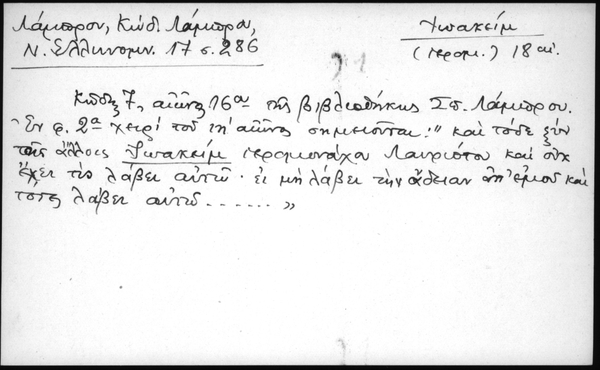 Λάμπρου, Κώδ. Λάμπρου,
Ν. Ελληνομν. 17 σ. 286
Ἰωακείμ
(ἱερομ.) 18 αἰ.
Κῶδιξ 7, αἰῶνος 16ου τῆς βιβλιοθήκης Σπ. Λάμπρου.
"Ἐν φ. 2α χειρί τοῦ ιη' αἰῶνος σημειοῦται: "καὶ τόδε σύν
τοῖς ἄλλοις Ἰωακείμ ἱερομονάχου Λαυριώτου καὶ οὐκ
ἔχει τὶς λάβει αὐτῶ· εἰ μὴ λάβει τὴν ἄδειαν ἀπ' ἐμοῦ καὶ
τότε λάβει αὐτῶ ......."